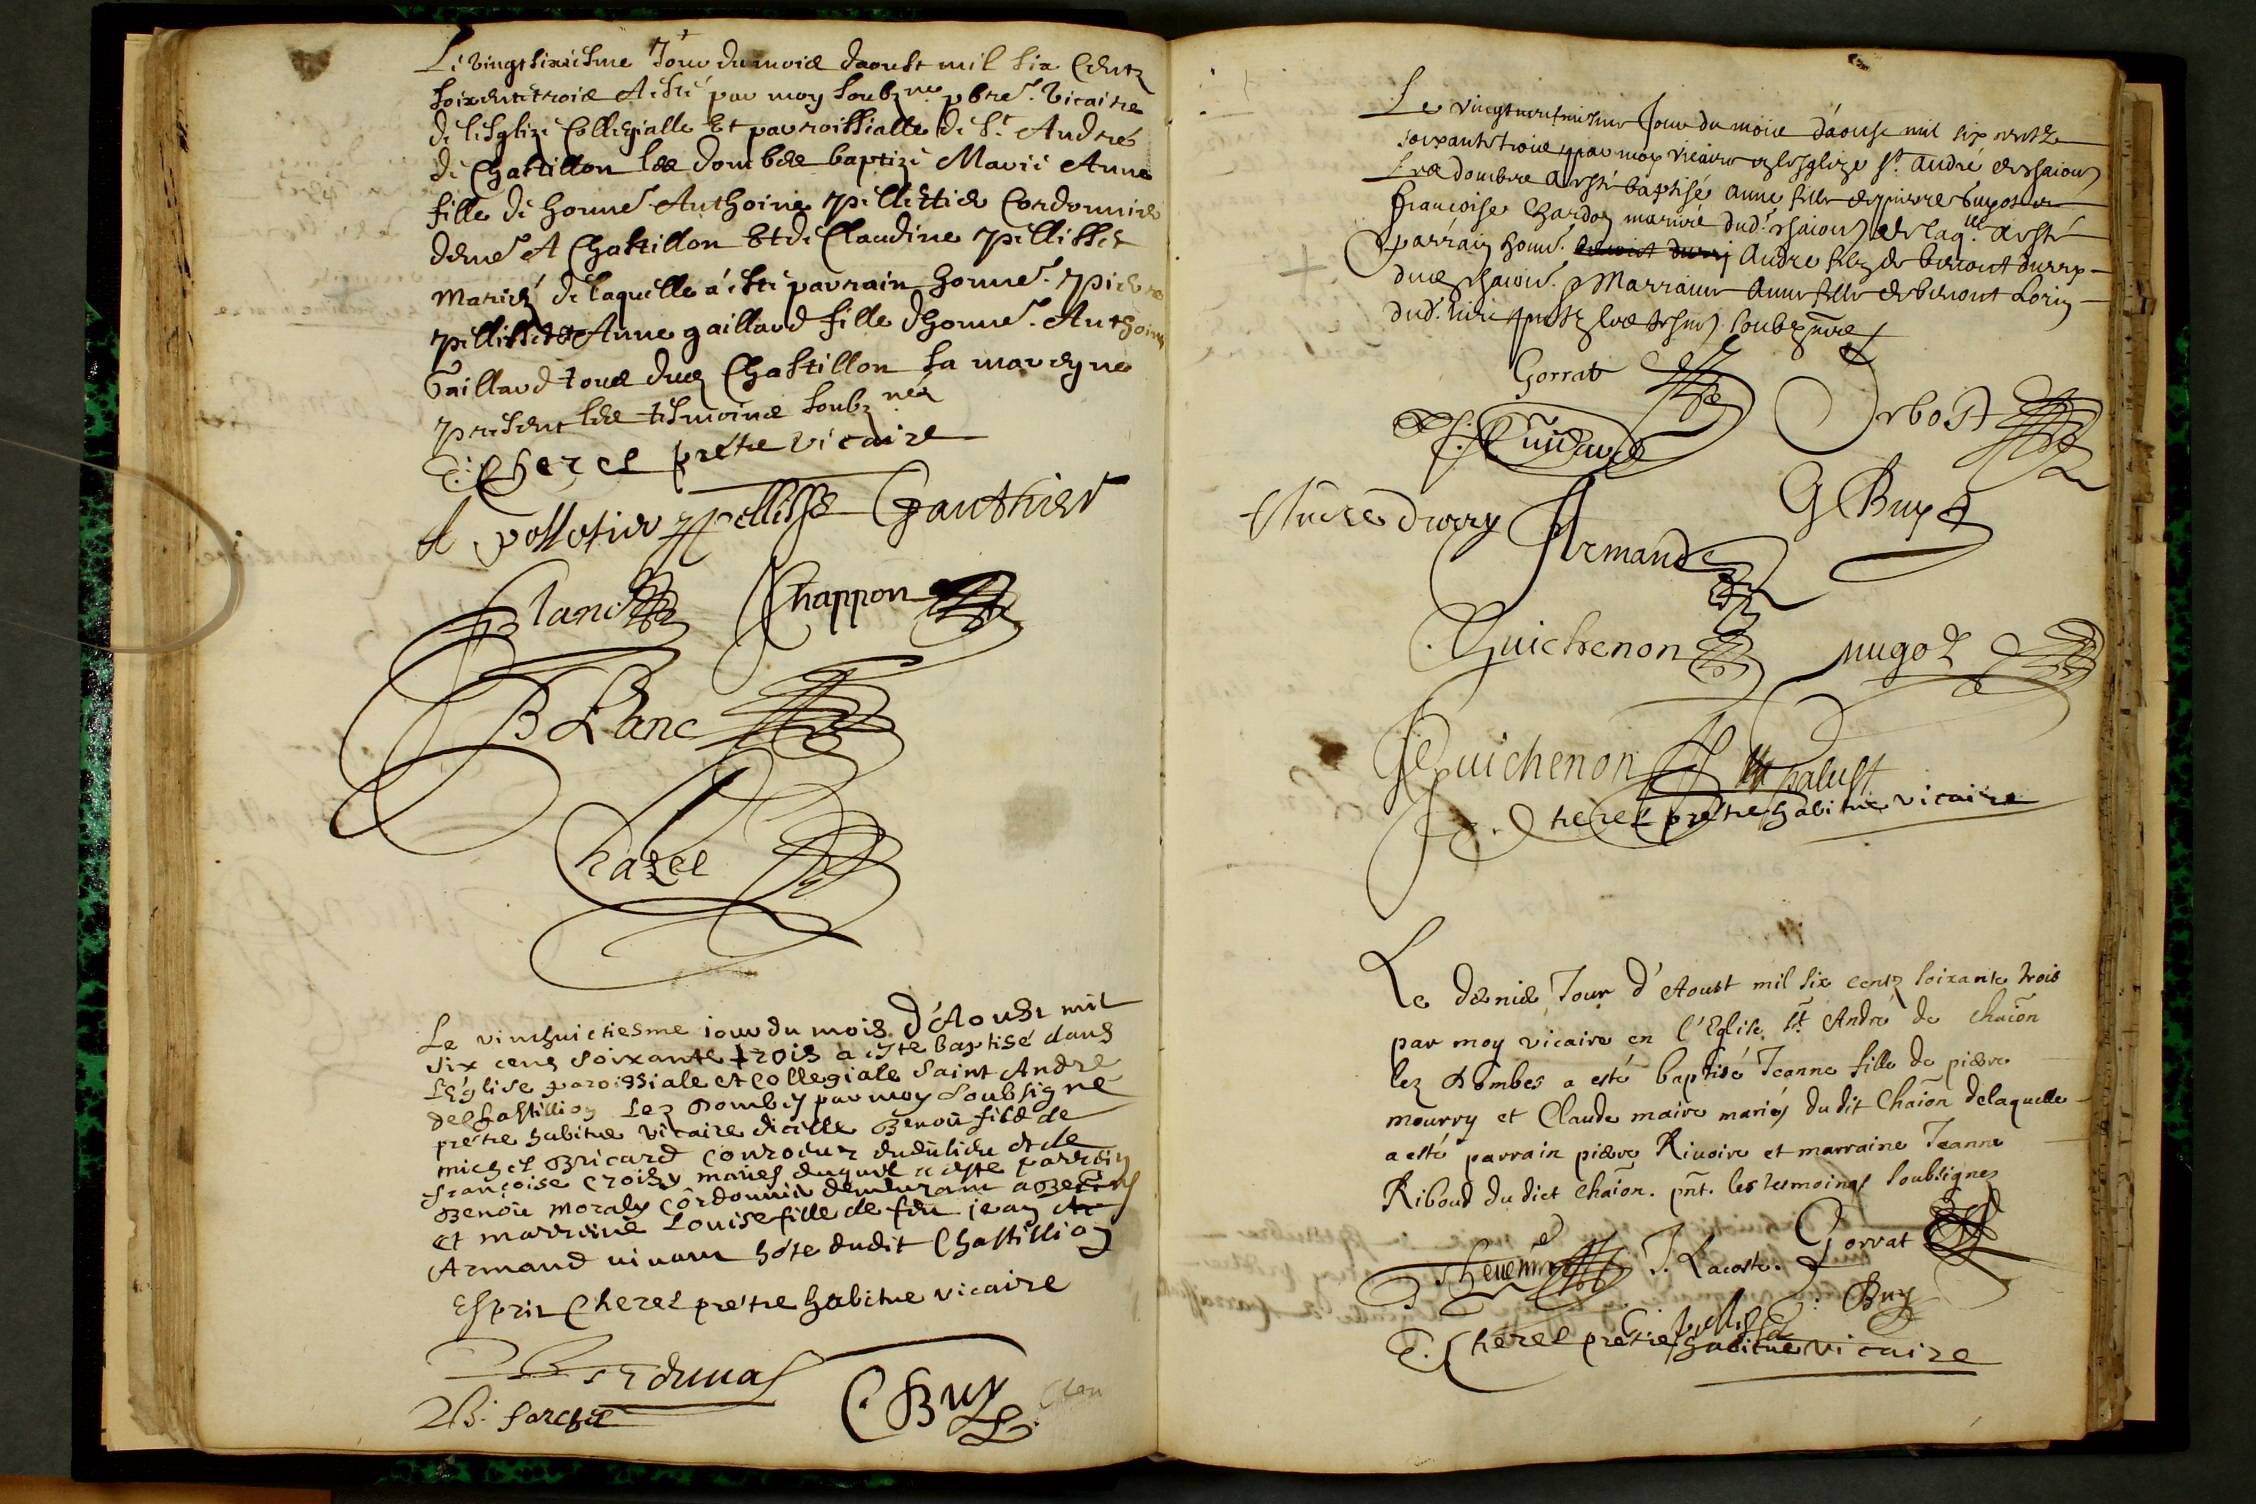 Le vingtsixiesme Jour du mois daoust mil six Centz
soixentetrois A esté par moy soubzne pbre. Vicaire
de lesglize Collegialle Et parroissialle de St. André
de Chastillon les dombes baptizé Marie Anne
fille de honne. Anthoine Pillettier Cordonnier
deme. A Chastillon Et de Claudine Pillisset
mariéz de laquelle a esté parrain honne. Pierre
Pillisset Anne gaillard fille dhonne. Anthoine
Gaillard tous dud Chastillon sa marreyne
present les tesmoins soubznés
E: Cherel pretre vicaire
A polletier Pellisse Gauthier
Planc Chappon
B Blanc
Chazel
Le vinthuictiesme iour du mois d'Aoust mil
six cens soixante trois a este baptisé dans
l'Eglise paroissiale et collegiale saint André
de Chastillion lez Dombes par moy soubsigné
pretre habitué vicaire dicelle Benoit fils de
michel Bricard Conroieur dudit lieu et de
françoise croizy mariés duquel a este parrein
Benoit moraly cordonnier demeurant a
et marreine Louise fille de feu jean
Armand vivant hôte dudit Chastillion
Esprit Cherel pretre habitué vicaire
Bredunas
B. sarchet
C. Buy
Le vingtneufmesme Jour du mois d'aoust mil six centz
soixantetrois par moy vicaire en lesglize St. André de chaion
les dombes a esté baptisé anne fille de pierre Guyot et
françoise Chardon mariné dud. chaion de laqlle a esté
parrain honne. benoist durry Andre filz de benoist durry
dud. chaion. Marraine anne fille de benoist Loriz
dud. lieu pntz les tesmn. soubzsnés
Gorrat
Orbost
Andre durry
Armand
G Buy
Guichenon
nugoz
Guichenon
palust
E. Cherel pretre habitué vicaire
Le dernier Jour d'Aoust mil six centz soixante trois
par moy vicaire en l'Eglise St. André de chaion
lez Dombes a esté baptisé Jeanne fille de pierre
mourry et Claude maire mariés du dit Chaion delaquelle
a esté parrain pierre Rivoire et marraine Jeanne
Riboud du dict chaion. pnt. les tesmoins soubsignez
Gorrat
J. Lacoste.
Buy
E. Cherel pretre habitué vicaire